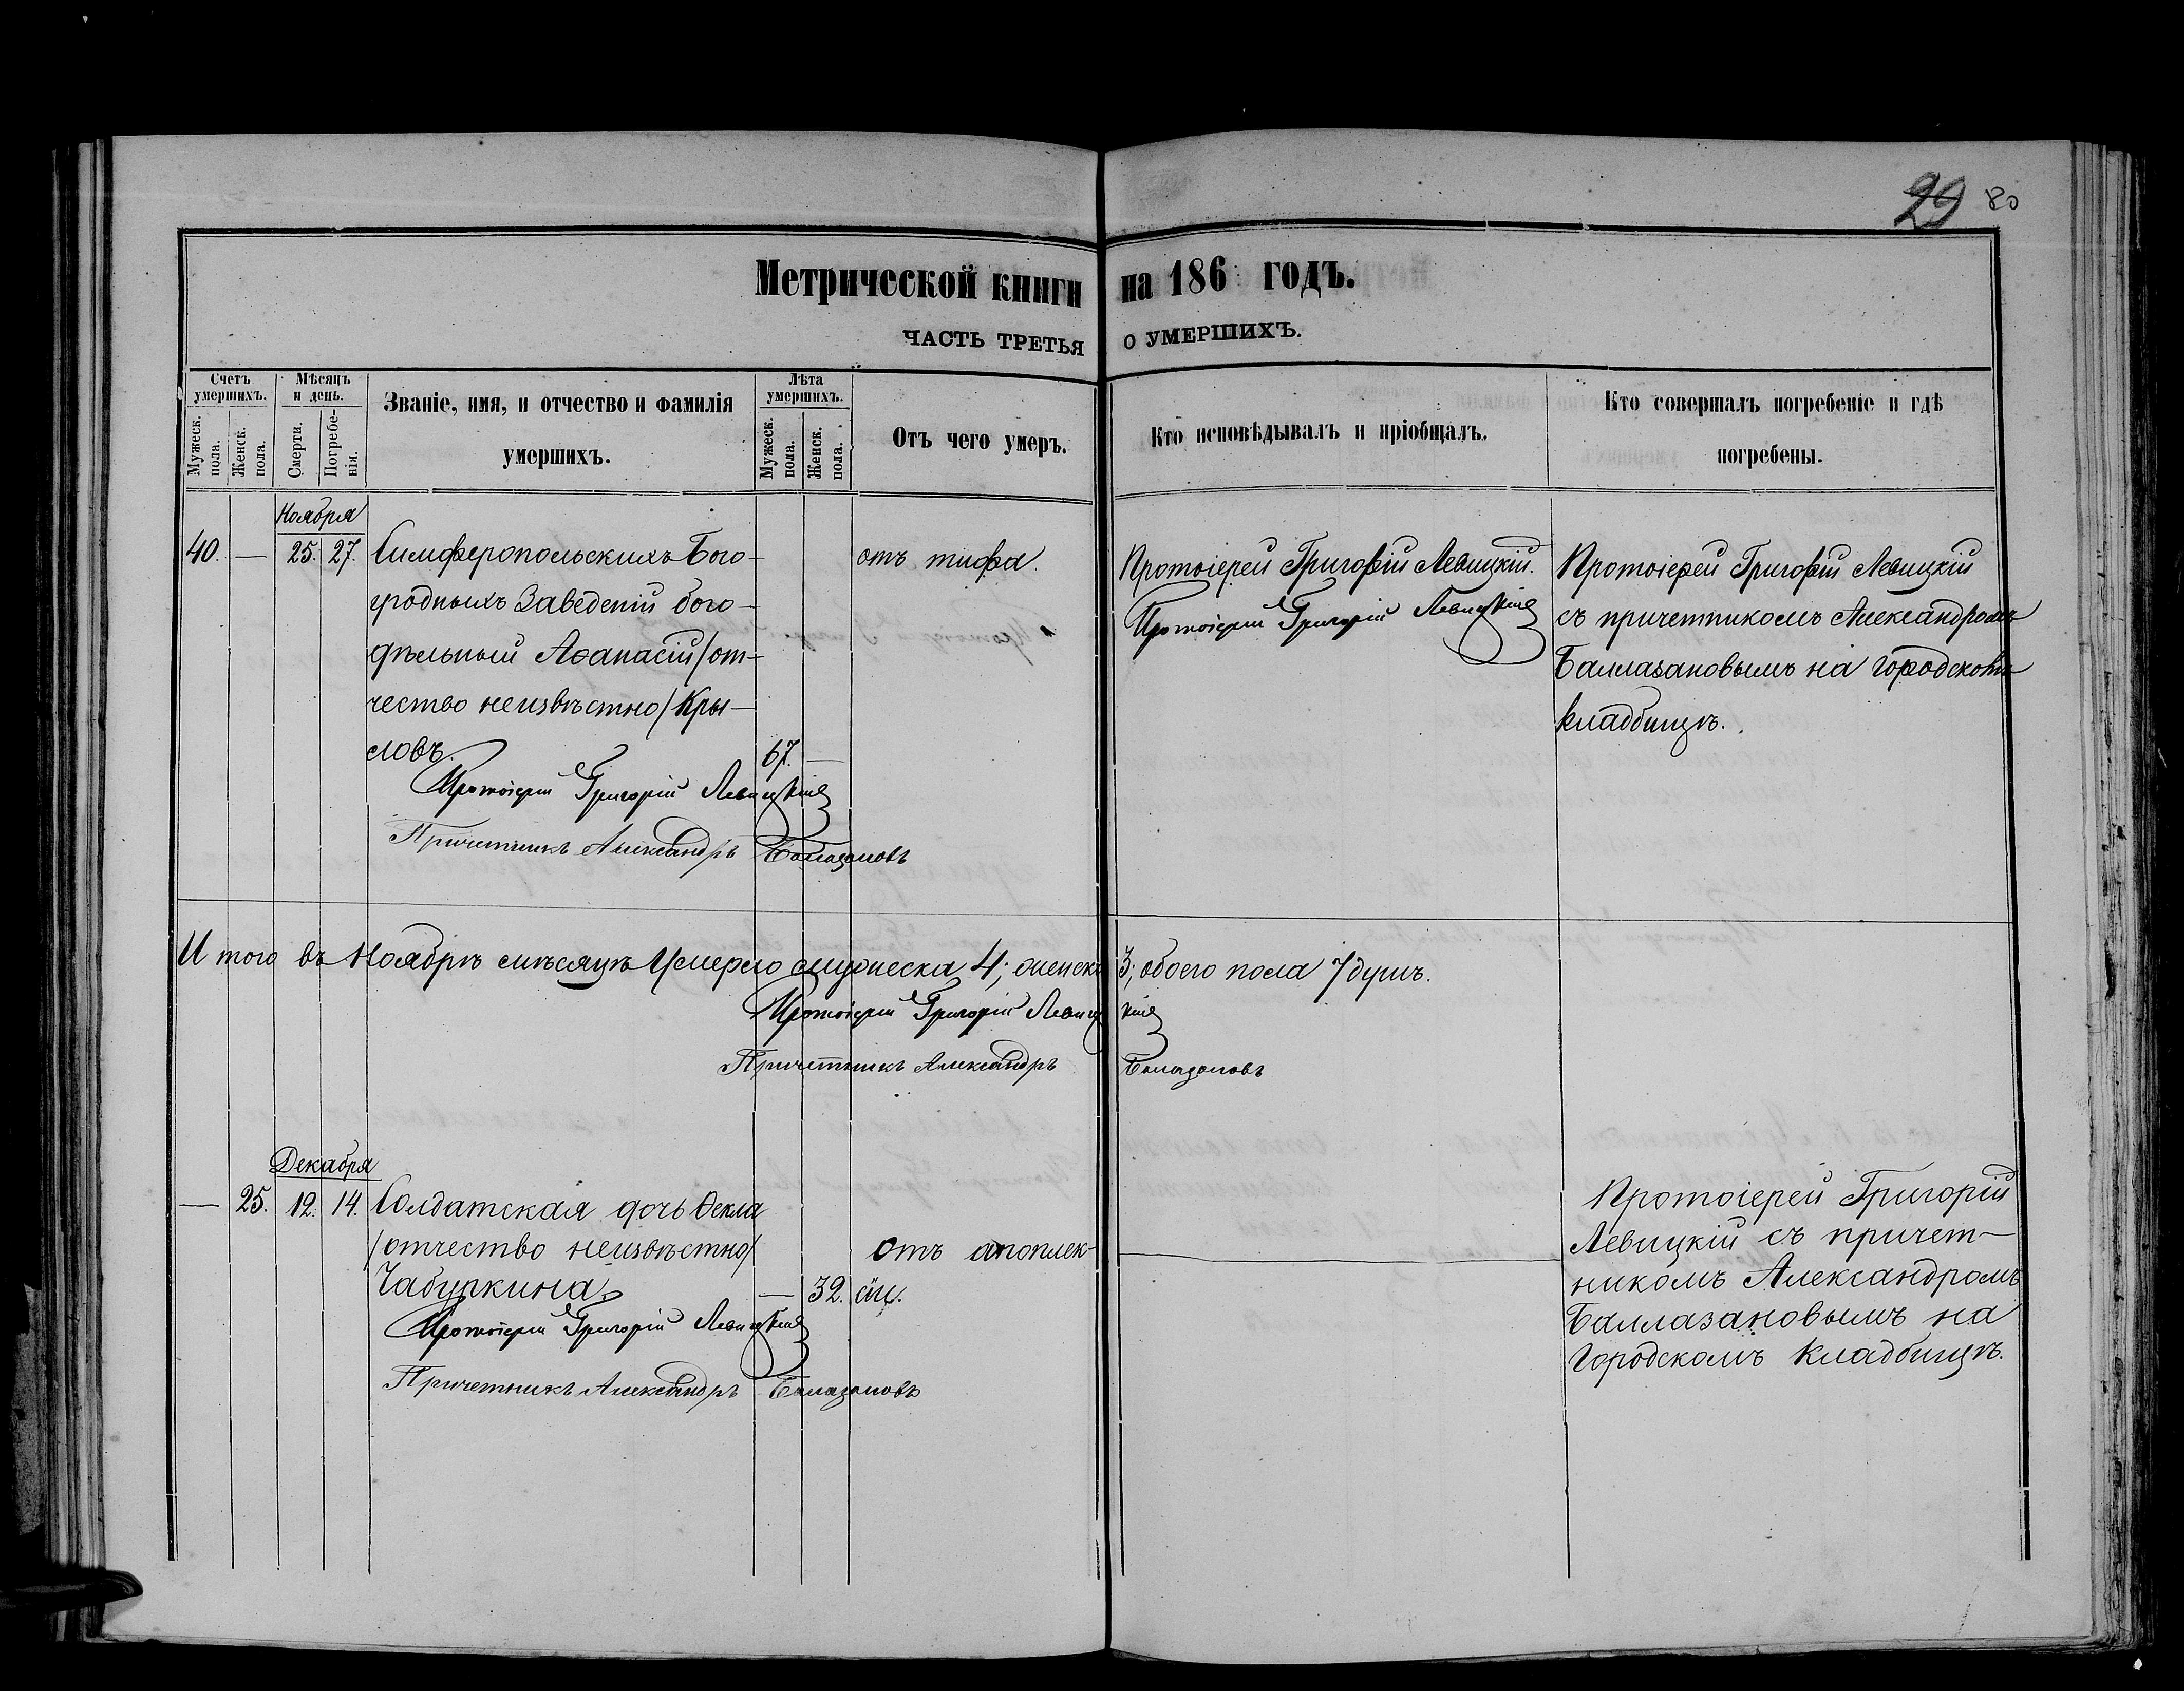 29 80
Метрической книги на 186 годъ.
ЧАСТЬ ТРЕТЬЯ О УМЕРШИХЪ.
Счетъ умершихъ.
Мужеск. пола.
Женск. пола.
Мѣсяцъ и день.
Смерти.
Погребе-
нія.
Званіе, имя, и отчество и фамилія
умершихъ.
Лѣта умершихъ.
Мужеск. пола.
Женск. пола.
Отъ чего умеръ.
Кто исповѣдывалъ и пріобщалъ.
Кто совершалъ погребеніе и гдѣ
погребены.
Ноября
40. — 25. 27. Симферопольскихъ Бого-
угодныхъ Заведеній бого-
дѣльный Аѳанасій /от-
чество неизвѣстно/ Кры-
ловъ. 67. —
отъ тифа.
Протоіерей Григорій Левицкій.
Протоіерей Григорій Левицкій
Протоіерей Григорій Левицкій
съ причетникомъ Александромъ
Баллазановымъ на городскомъ
кладбищѣ.
Протоіерей Григорій Левицкій
Причетникъ Александръ Балазановъ
Итого въ Ноябрѣ мѣсяцѣ Умерло мужеска 4; женска 3; обоего пола 7 душъ.
Протоіерей Григорій Левицкій
Причетникъ Александръ Балазановъ
Декабря
— 25. 12. 14. Солдатская дочь Ѳекла
/отчество неизвѣстно/
Чабуркина. — 32.
отъ апоплек-
сіи.
—
Протоіерей Григорій
Левицкій съ причет-
никомъ Александромъ
Баллазановымъ на
Городскомъ кладбищѣ.
Протоіерей Григорій Левицкій
Причетникъ Александръ Балазановъ